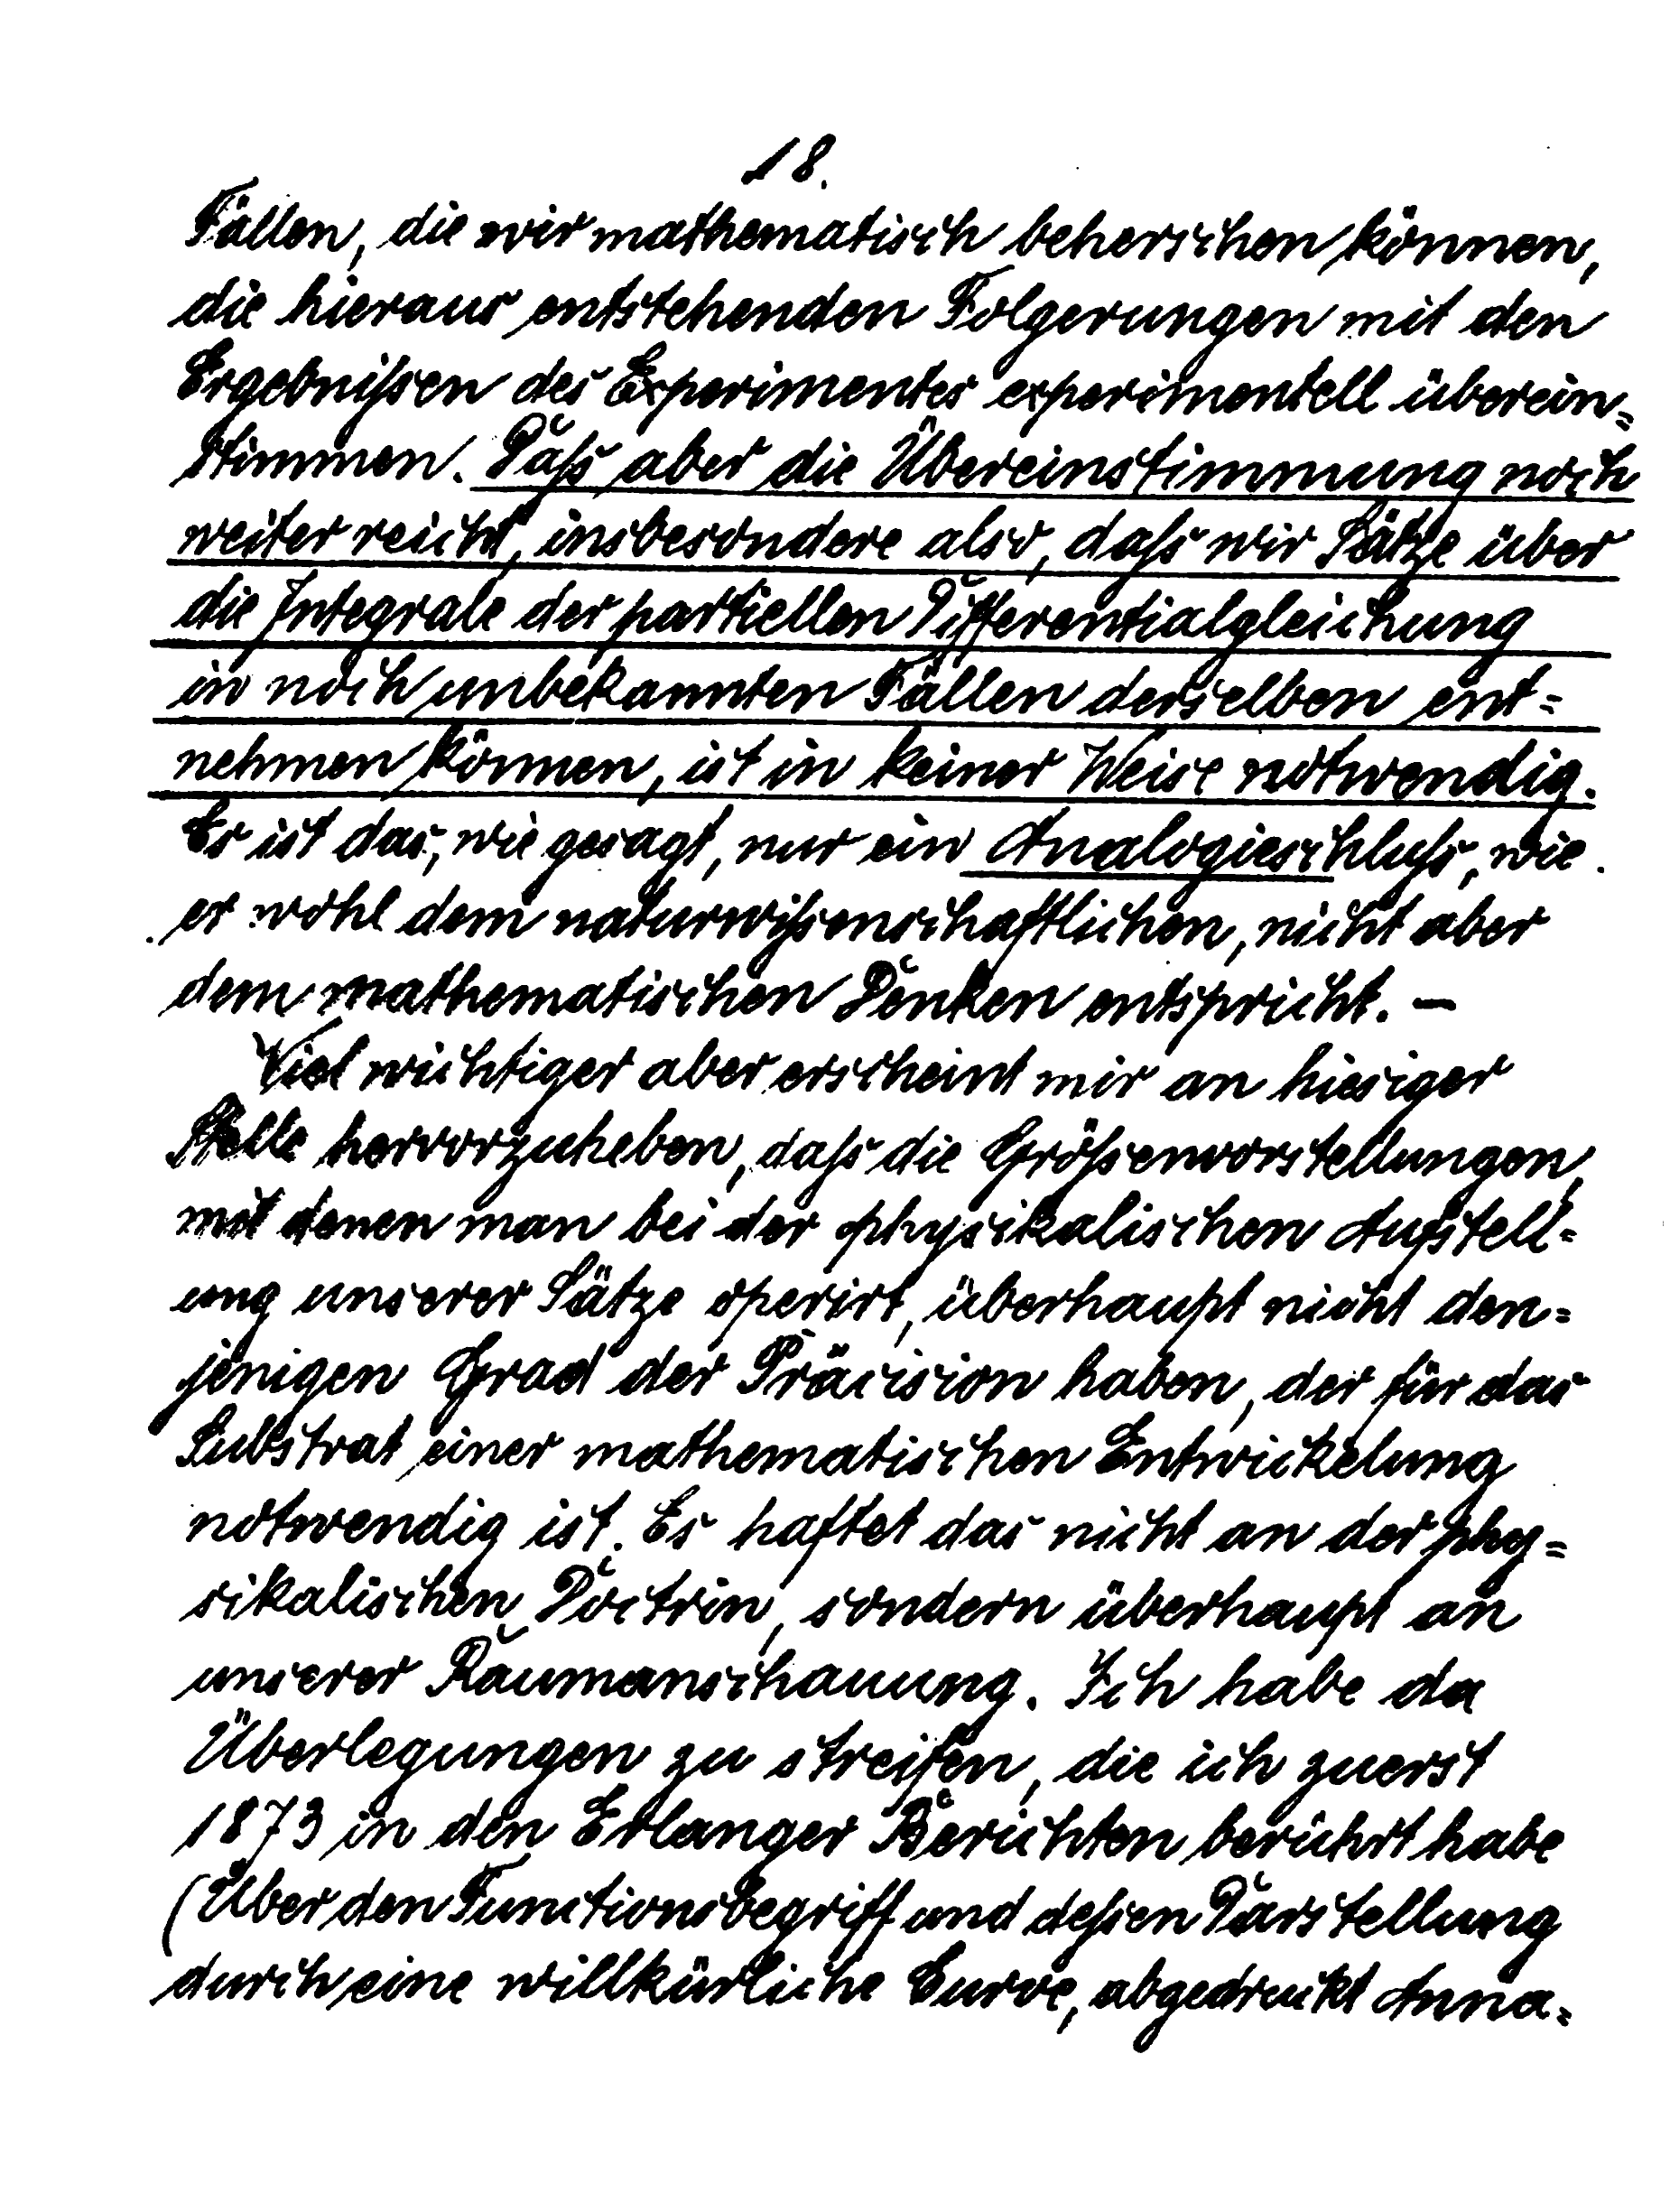 18.
Fällen, die wir mathematisch beherschen können,
die hieraus entstehenden Folgerungen mit den
Ergebnißen des Experimentes experimentell überein=
stimmen. Daß aber die Übereinstimmung noch
weiter reicht, insbesondere also, daß wir Sätze über
die Integrale der partiellen Differentialgleichung
in noch unbekannten Fällen derselben ent=
nehmen können, ist in keiner Weise notwendig.
Es ist das, wie gesagt, nur ein Analogieschluß, wie
er wohl dem naturwißenschaftlichen, nicht aber
dem mathematischen Denken entspricht. —
Viel wichtiger aber erscheint mir an hiesiger
Stelle hervorzuheben, daß die Größenvorstellungen,
mit denen man bei der physikalischen Aufstell=
ung unserer Sätze operirt, überhaupt nicht den=
jenigen Grad der Präcision haben, der für das
Substrat einer mathematischen Entwickelung
notwendig ist. Es haftet das nicht an der phy=
sikalischen Doctrin, sondern überhaupt an
unserer Raumanschauung. Ich habe da
Überlegungen zu streifen, die ich zuerst
1873 in den Erlanger Berichten berührt habe
(Über den Functionsbegriff und deßen Darstellung
durch eine willkürliche Curve, abgedruckt Anna=